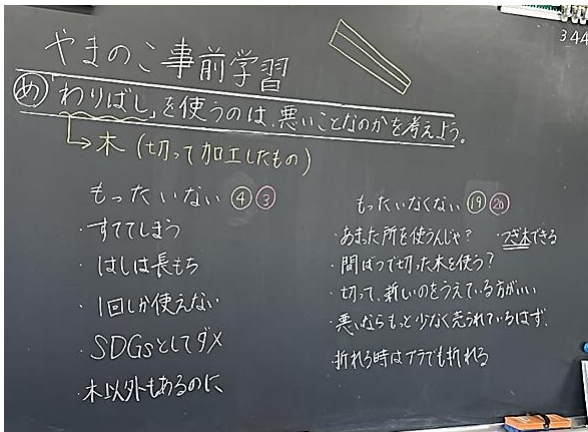 344
やまのこ事前学習
め 「わりばし」を使うのは、悪いことなのかを考えよう。
→木(切って加工したもの)
もったいない ④ ③
・すててしまう
・はしは長もち
・1回しか使えない
・SDGsとしてダメ
・木以外もあるのに
もったいなくない ⑲ ⑳
・あまった所を使うんじゃ? ・つぎ木できる
・間ばつで切った木を使う?
・切って、新しいのをうえている方がいい
・悪いならもっと少なく売られているはず。
・折れる時はプラでも折れる